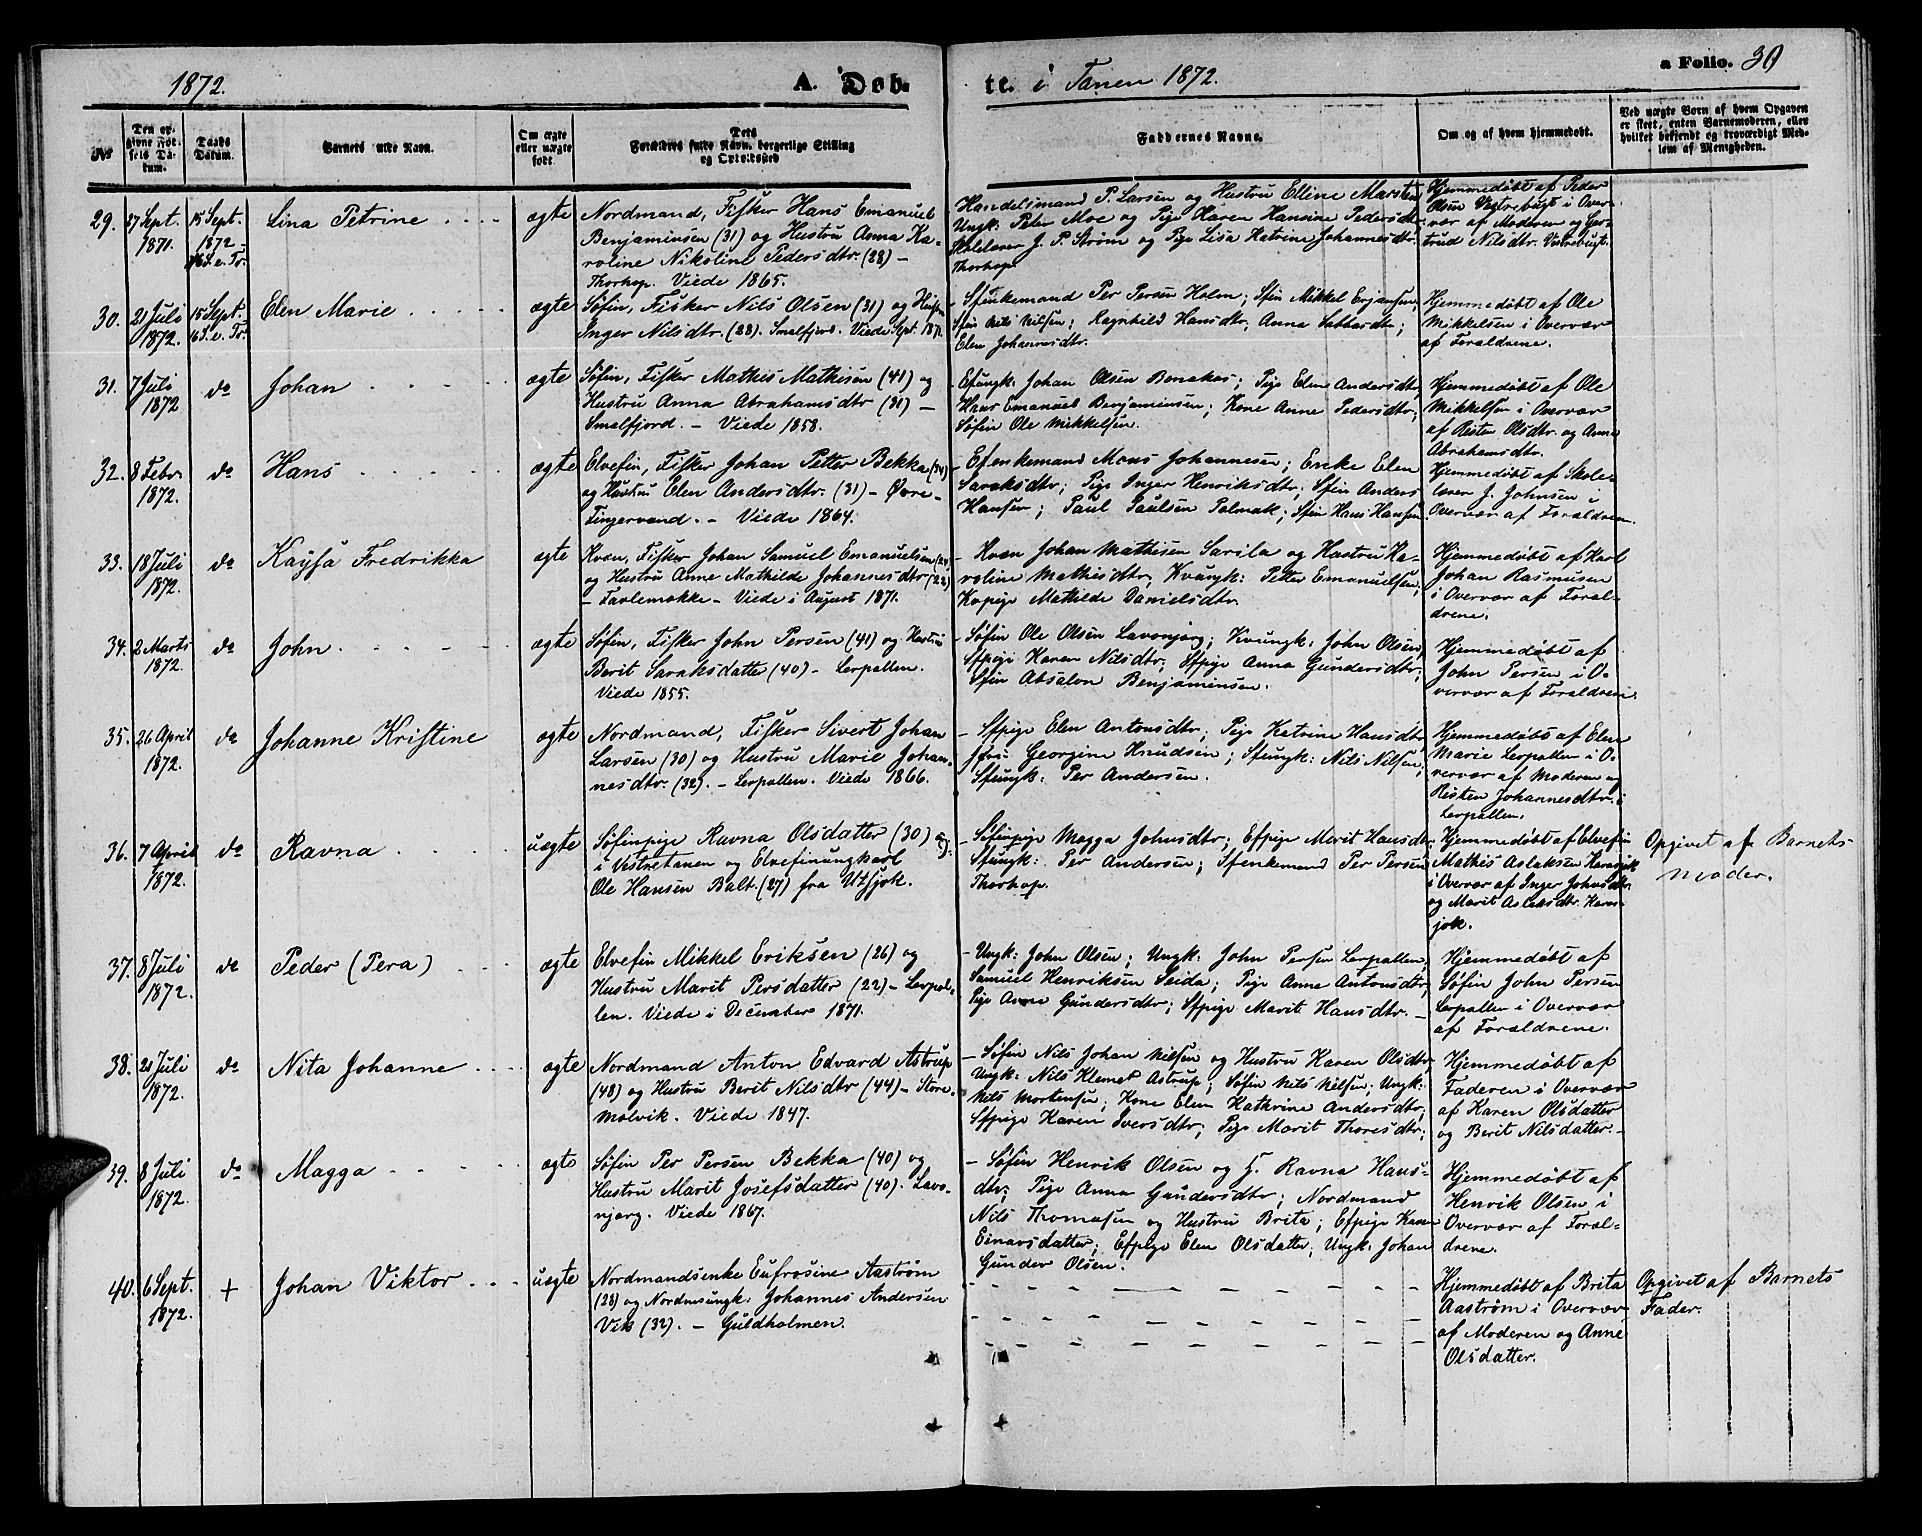 1872.
A. Døb-
te. i Tanen 1872.
a Folio. 39
No
Den op-
givne Fød-
sels Da-
tum.
Daabs
Datum.
Barnets fulde Navn.
Om ægte
eller uægte
født.
Dets
Forældres fulde Navn, borgerlige Stilling
og Opholdssted
Faddernes Navne.
Om og af hvem hjemmedøbt.
Ved uægte Børn af hvem Opgaven
er skeet, enten Barnemoderen, eller
hvilket bekjendt og troværdigt Med-
lem af Menigheden.
29.
27 Sept.
1871.
15 Sept.
1872
16 S. e. Tr.
Lina Petrine
ægte
Nordmand, Fisker Hans Emanuel
Benjaminsen (31) og Hustru Anna Ka-
roline Nikoline Pedersdtr. (28) –
Thorhop. Viede 1865.
Handelsmand P. Larsen og Hustru Elline Marie
Ungk: Peter Moe og Pige Karen Hansine Pedersdtr.
Skolelærer J. P. Strøm og Pige Lisa Katrine Johannesdtr.
Thorhop.
Hjemmedøbt af Peder
Olsen Vestrebugt i Over-
vær af Moderen og Ger-
trud Nilsdtr. Vestrebugt.
30.
21 Juli
1872.
15 Sept.
16 S. e. Tr.
Elen Marie
ægte
Søfin, Fisker Nils Olsen (31) og Hustru
Inger Nilsdtr. (28). Smalfjord. Viede Spt. 1871.
– Sfenkemand Per Persen Holm; Sfin Mikkel Erjansen,
Sfin Nils Nilsen; Ragnhild Hansdtr; Anna Sabbasdtr;
Elen Johannesdtr.
Hjemmedøbt af Ole
Mikkelsen i Overvær
af Forældrene.
31.
7 Juli
1872
do
Johan
ægte
Søfin, Fisker Mathis Mathisen (41) og
Hustru Anna Abrahamsdtr (31) –
Smalfjord. – Viede 1858.
– Efungk: Johan Olsen Bonakas; Pige Elen Andersdtr;
Hans Emanuel Benjaminsen; Kone Anne Pedersdtr;
Søfin Ole Mikkelsen.
Hjemmedøbt af Ole
Mikkelsen i Overvær
af Risten Olsdtr. og Anna
Abrahamsdtr.
32.
8 Febr.
1872.
do
Hans
ægte
Elvefin, Fisker Johan Petter Bekka (34)
og Hustru Elen Andersdtr. (31) – Øvre-
Fingervand. – Viede 1864.
– Efenkemand Mons Johannesen; Enke Elen
Saraksdtr; Pige Inger Henriksdtr; Sfin Anders
Hansen; Paul Paulsen Polmak; Sfin Hans Hansen
Hjemmedøbt af Skole-
lærer J. Johnsen i
Overvær af Forældrene.
33.
18 Juli
1872.
do
Kaysa Fredrikka
ægte
Kvæn, Fisker Johan Samuel Emanuelsen (24)
og Hustru Anne Mathilde Johannesdtr. (22)
– Tarlemokke – Viede i August 1871.
– Kvæn Johan Mathisen Sarila og Hustru Ka-
roline Mathisdtr; Kvungk: Petter Emanuelsen;
Kvpige Mathilde Danielsdtr.
Hjemmedøbt af Karl
Johan Rasmusen
i Overvær af Foræl-
drene.
34.
2 Marts
1872.
do
John.
ægte
Søfin, Fisker John Persen (41) og Hustru
Berit Saraksdatter (40) – Lerpollen.
Viede 1855.
– Søfin Ole Olsen Lavonjarg; Kvungk: John Olsen,
Sfpige Karen Nilsdtr; Sfpige Anna Gundersdtr;
Sfin Absalon Benjaminsen.
Hjemmedøbt af
John Persen i O-
vervær af Forældrene.
35.
26 April
1872.
do
Johanne Kristine
ægte
Nordmand, Fisker Sivert Johan
Larsen (30) og Hustru Marie Johan-
nesdtr. (32). – Lerpollen. Viede 1866.
– Sfpige Elen Antonsdtr; Pige Katrine Hansdtr;
Georgine Knudsen; Sfungk: Nils Nilsen,
Sfungk: Per Andersen.
Hjemmedøbt af Elen
Marie Lerpollen i O-
vervær af Moderen og
Risten Johannesdtr. i
Lerpollen.
36.
7 April
1872.
do
Ravna
uægte
Søfinpige Ravna Olsdatter (30)
i Vestretanen og Elvefinungkarl
Ole Hansen Balt. (27) fra Utsjok.
– Søfinpige Magga Johnsdtr; Efpige Marit Hansdtr.
Sfungk: Per Andersen; Sfenkemand Per Persen
Thorhop.
Hjemmedøbt af Elvefin
Mathis Aslaksen Karasjok
i Overvær af Inger Johnsdtr.
og Marit Aslaksdtr. Karas-
jok.
Opgivet af Barnets
Moder.
37.
8 Juli
1872.
do
Peder (Pera)
ægte
Elvefin Mikkel Eriksen (26) og
Hustru Marit Persdatter (22) – Lerpol-
len. Viede i December 1871.
– Ungk: John Olsen; Ungk: John Persen Lerpollen,
Samuel Henriksen Seida; Pige Anne Antonsdtr;
Pige Anne Gundersdtr; Sfpige Marit Hansdtr. –
Hjemmedøbt af
Søfin John Persen
Lerpollen i Overvær
af Forældrene.
38.
21 Juli
1872.
do
Nita Johanne
ægte
Nordmand Anton Edvard Astrup
(48) og Hustru Berit Nilsdtr (44) – Store-
molvik. Viede 1847.
– Søfin Nils Johan Nilsen og Hustru Karen Olsdtr;
Ungk: Nils Klemet Astrup; Søfin Nils Nilsen; Ungk:
Nils Mortensen; Kone Elen Kathrine Andersdtr;
Sfpige Karen Iversdtr; Pige Marit Thoresdtr;
Hjemmedøbt af
Faderen i Overvær
af Karen Olsdatter
og Berit Nilsdatter. –
39.
8 Juli
1872.
do
Magga
ægte
Søfin Per Persen Bekka (40) og
Hustru Marit Josefsdatter (40). Lavo-
njarg. Viede 1867.
– Søfin Henrik Olsen og H. Ravna Hans-
dtr; Pige Anna Gundersdtr; Nordmand
Nils Thomasen og Hustru Brita; Efpige Karen
Einarsdatter; Efpige Elen Olsdatter; Ungk: Johan
Gunder Olsen.
Hjemmedøbt af
Henrik Olsen i
Overvær af Foræl-
drene.
40.
6 Sept.
1872.
+
Johan Viktor
uægte
Nordmandsenke Eufrosine Aastrøm
(28) og Nordmsungk: Johannes Andersen
Vik (32). – Guldholmen.
Hjemmedøbt af Brita
Aastrøm i Overvær
af Moderen og Anne
Olsdatter.
Opgivet af Barnets
Fader.